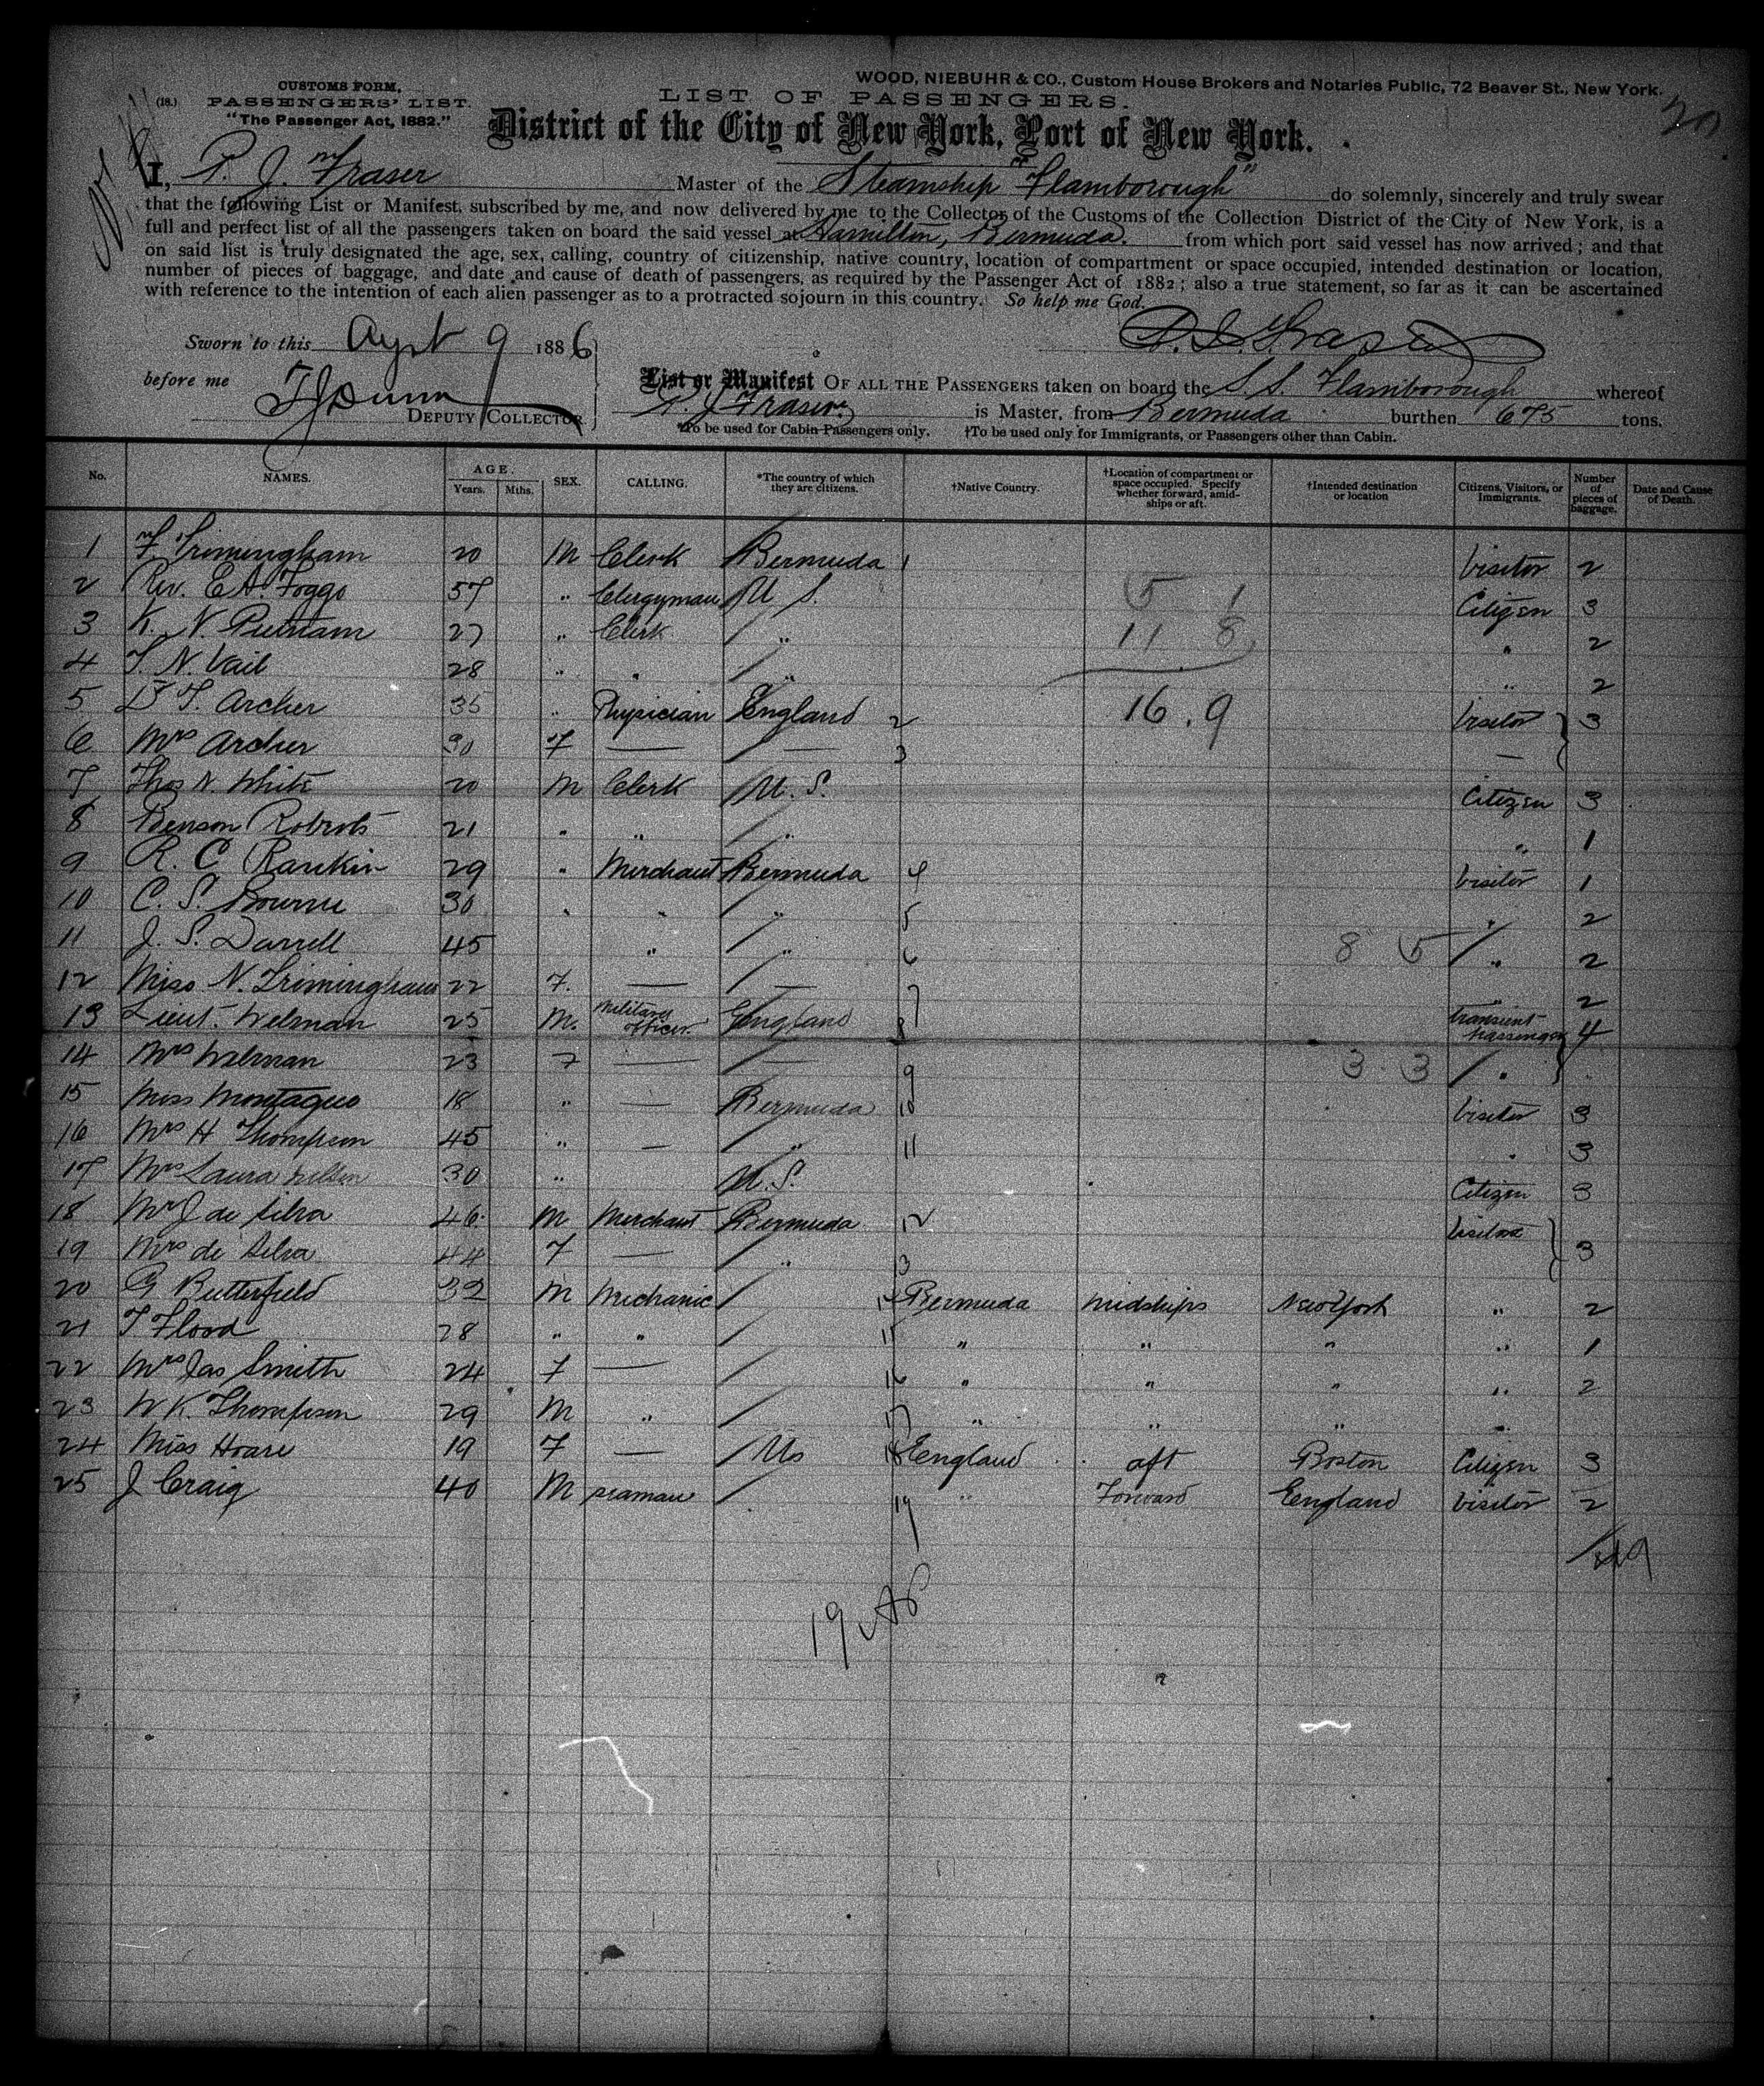 WOOD, NIEBUHR & CO., Custom House Brokers and Notaries Public, 72 Beaver St., New York.
CUSTOMS FORM,
(18.) PASSENGERS' LIST.
"The Passenger Act, 1882."
20
LIST OF PASSENGERS.
District of the City of New York, Port of New York.
I, P. J. Fraser Master of the Steamship "Flamborough" do solemnly, sincerely and truly swear
that the following List or Manifest, subscribed by me, and now delivered by me to the Collector of the Customs of the Collection District of the City of New York, is a
full and perfect list of all the passengers taken on board the said vessel at Hamilton, Bermuda. from which port said vessel has now arrived; and that
on said list is truly designated the age, sex, calling, country of citizenship, native country, location of compartment or space occupied, intended destination or location,
number of pieces of baggage, and date and cause of death of passengers, as required by the Passenger Act of 1882; also a true statement, so far as it can be ascertained
with reference to the intention of each alien passenger as to a protracted sojourn in this country. So help me God.
P. J. Fraser
Sworn to this Augst 9 1886
before me
DEPUTY COLLECTOR
List or Manifest OF ALL THE PASSENGERS taken on board the S.S. Flamborough whereof
P. J. Fraser is Master, from Bermuda burthen 675 tons.
*To be used for Cabin Passengers only. †To be used only for Immigrants, or Passengers other than Cabin.
No. NAMES. AGE. Years. Mths. SEX. CALLING. *The country of which they are citizens. †Native Country. †Location of compartment or space occupied. Specify whether forward, amidships or aft. †Intended destination or location Citizens, Visitors, or Immigrants. Number of pieces of baggage. Date and Cause of Death.
1 Mr F. Trimingham 20 M Clerk Bermuda 1 Visitor 2
2 Rev. E A. Foggo 57 " Clergyman U S. 5 1 Citizen 3
3 K. N. Putnam 27 " Clerk " 11 8 " 2
4 T. N. Vail 28 " " " " 2
5 Dr T. Archer 35 " Physician England 2 16.9 Visitor 3
6 Mrs Archer 30 F — — 3 —
7 Thos N. White 20 M Clerk U.S. Citizen 3
8 Benson Roberts 21 " " " " 1
9 R. C. Rankin 29 " Merchant Bermuda 4 Visitor 1
10 C. S. Bourne 30 " " " 5 " 2
11 J. S. Darrell 45 " " 6 8 5 " 2
12 Miss N. Trimingham 22 F. — — 7 " 2
13 Lieut. Welman 25 M. Military officer England 8 transient passenger 4
14 Mrs Welman 23 F — — 9 3 3 "
15 Miss Montague 18 " — Bermuda 10 Visitor 3
16 Mrs H Thompson 45 " — " 11 " 3
17 Mrs Laura 30 " U.S. Citizen 3
18 Mr J de Silva 46 M Merchant Bermuda 12 Visitors
19 Mrs de Silva 44 F — " 13 3
20 G Butterfield 32 M Mechanic 14 Bermuda Midships New York " 2
21 T Flood 28 " " 15 " " " " 1
22 Mrs Jas Smith 24 F — 16 " " " " 2
23 W K. Thompson 29 M " 17 " " " "
24 Miss Hoare 19 F — Us 18 England aft Boston Citizen 3
25 J Craig 40 M seaman 19 " Forward England Visitor 2
49
19